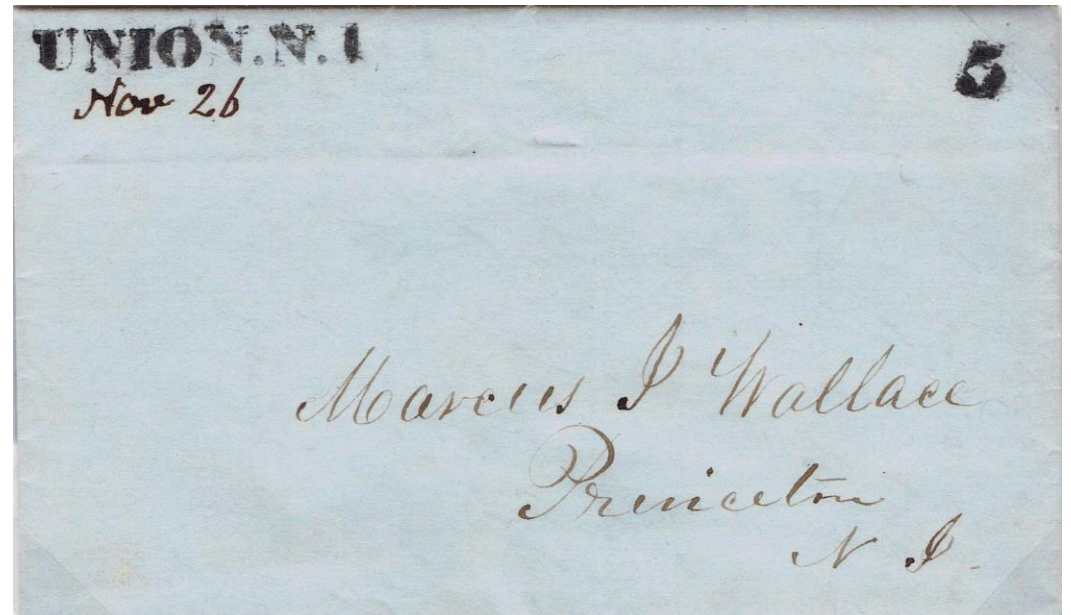 UNION. N. J
5
Nov 26
Marcus J Wallace
Princeton
N J.